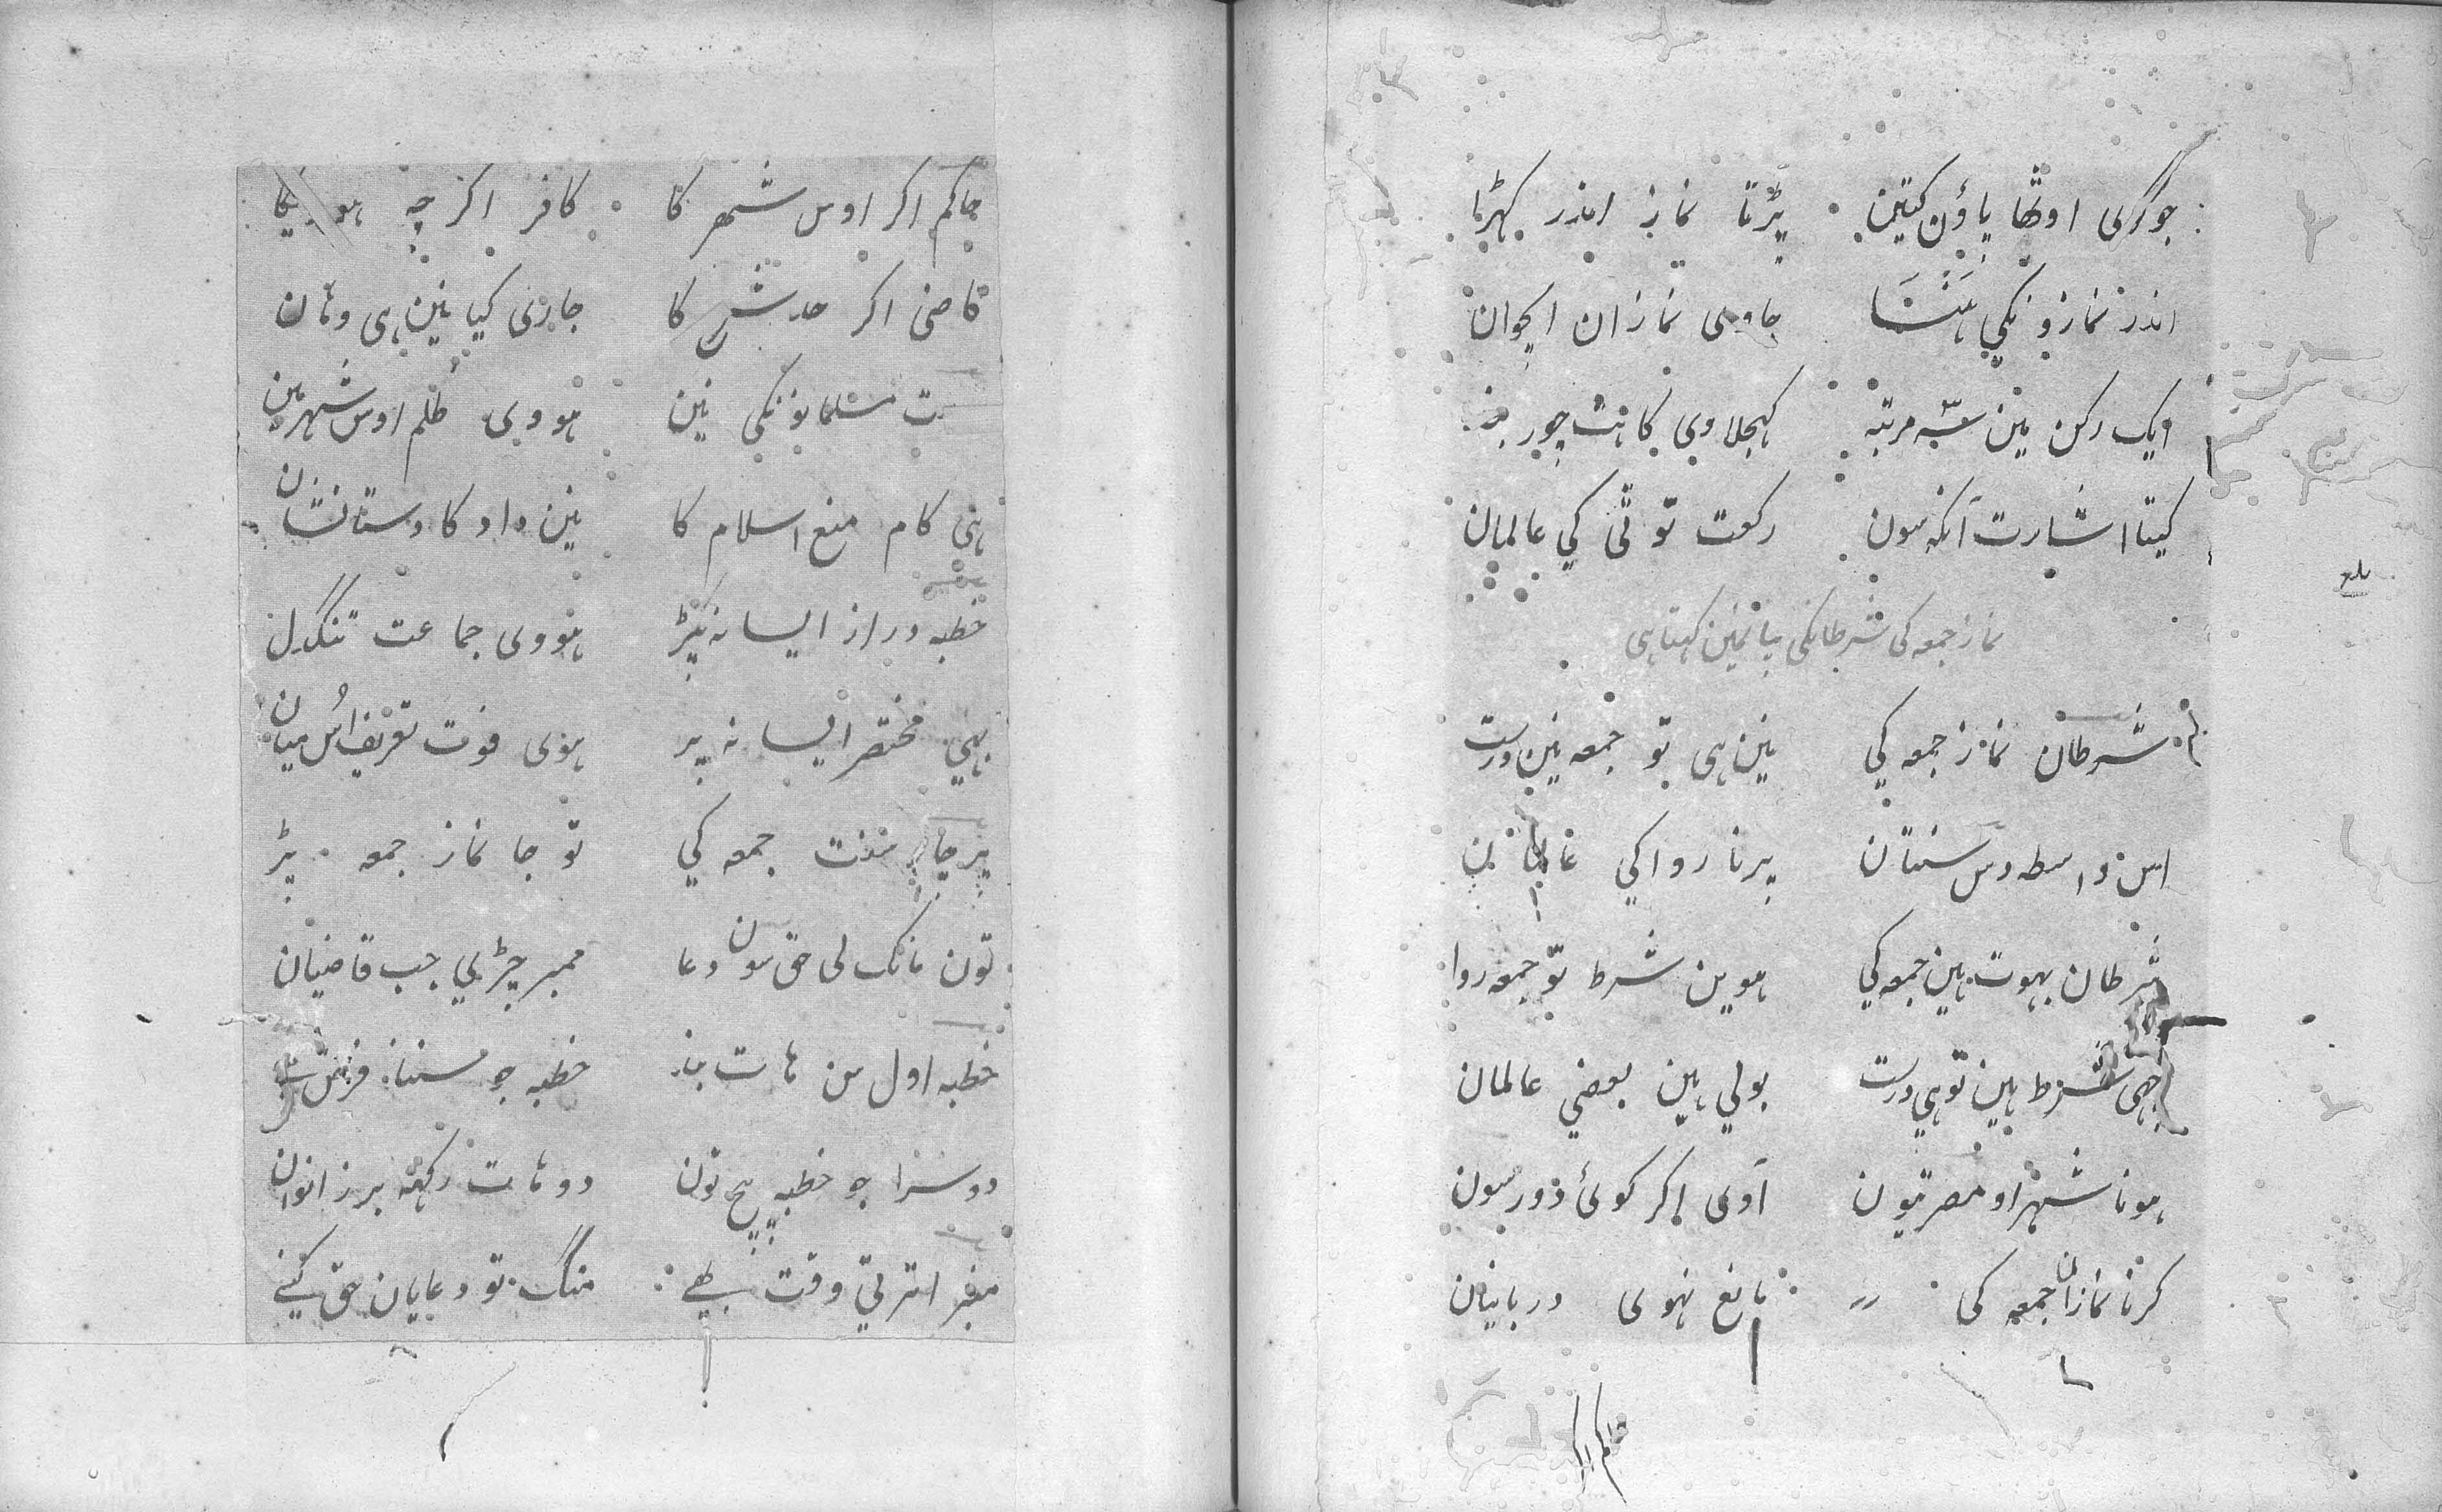 جو کوی اوٹھا پاؤن کتین پڑتا نماز اندر کہڑا
اندر نمازونکی ہنسنا جاوی نمازان ایچوان
ایک رکن مین سہ مرتبہ کہجلاوی کا ہت چور
کیتا اشارت آنکہ سون رکعت توٹی کی عالمان
نماز جمعہ کی شرطانکی بیانمین کہتا ہی
شرطان نماز جمعہ کی نین ہی تو جمعہ نین درست
اس واسطہ وس سنتان پرنا روا کی غالبان
شرطان بہوت ہین جمعہ کی ہوین شرط تو جمعہ روا
شرط ہین تو ہی درست بولی ہین بعضی عالمان
ہونا شہر او مصر تیون آوی اکر کوئی دور سون
کرنا نمازان جمعہ کی مانع نہوی دربانیان
حاکم اکر
حاکم اکر اوس شہر کا کافر اکر چہ ہو
قاضی اکر حد شرع کا جاری کیا نین ہی وہان
مسلمانونکی نین ہووی ظلم اوس شہر مین
ہی کام منع اسلام کا نین داد کا دستا نشان
خطبہ دراز ایسا نہ پڑ ہووی جماعت تنگدل
بہی مختصر ایسا نہ پر ہوی فوت تعریف اُس میان
پر چار سنت جمعہ کی تو جا نماز جمعہ پڑ
تون مانک لی حق سون دعا ممبر چڑہی جب قاضیان
خطبہ اول سن ہات بند خطبہ جو سننا فرض
دوسرا جو خطبہ بیچ تون دو ہات رکہہ بر زانوان
منبر اترتی وقت منگ تو دعایان حق کنے